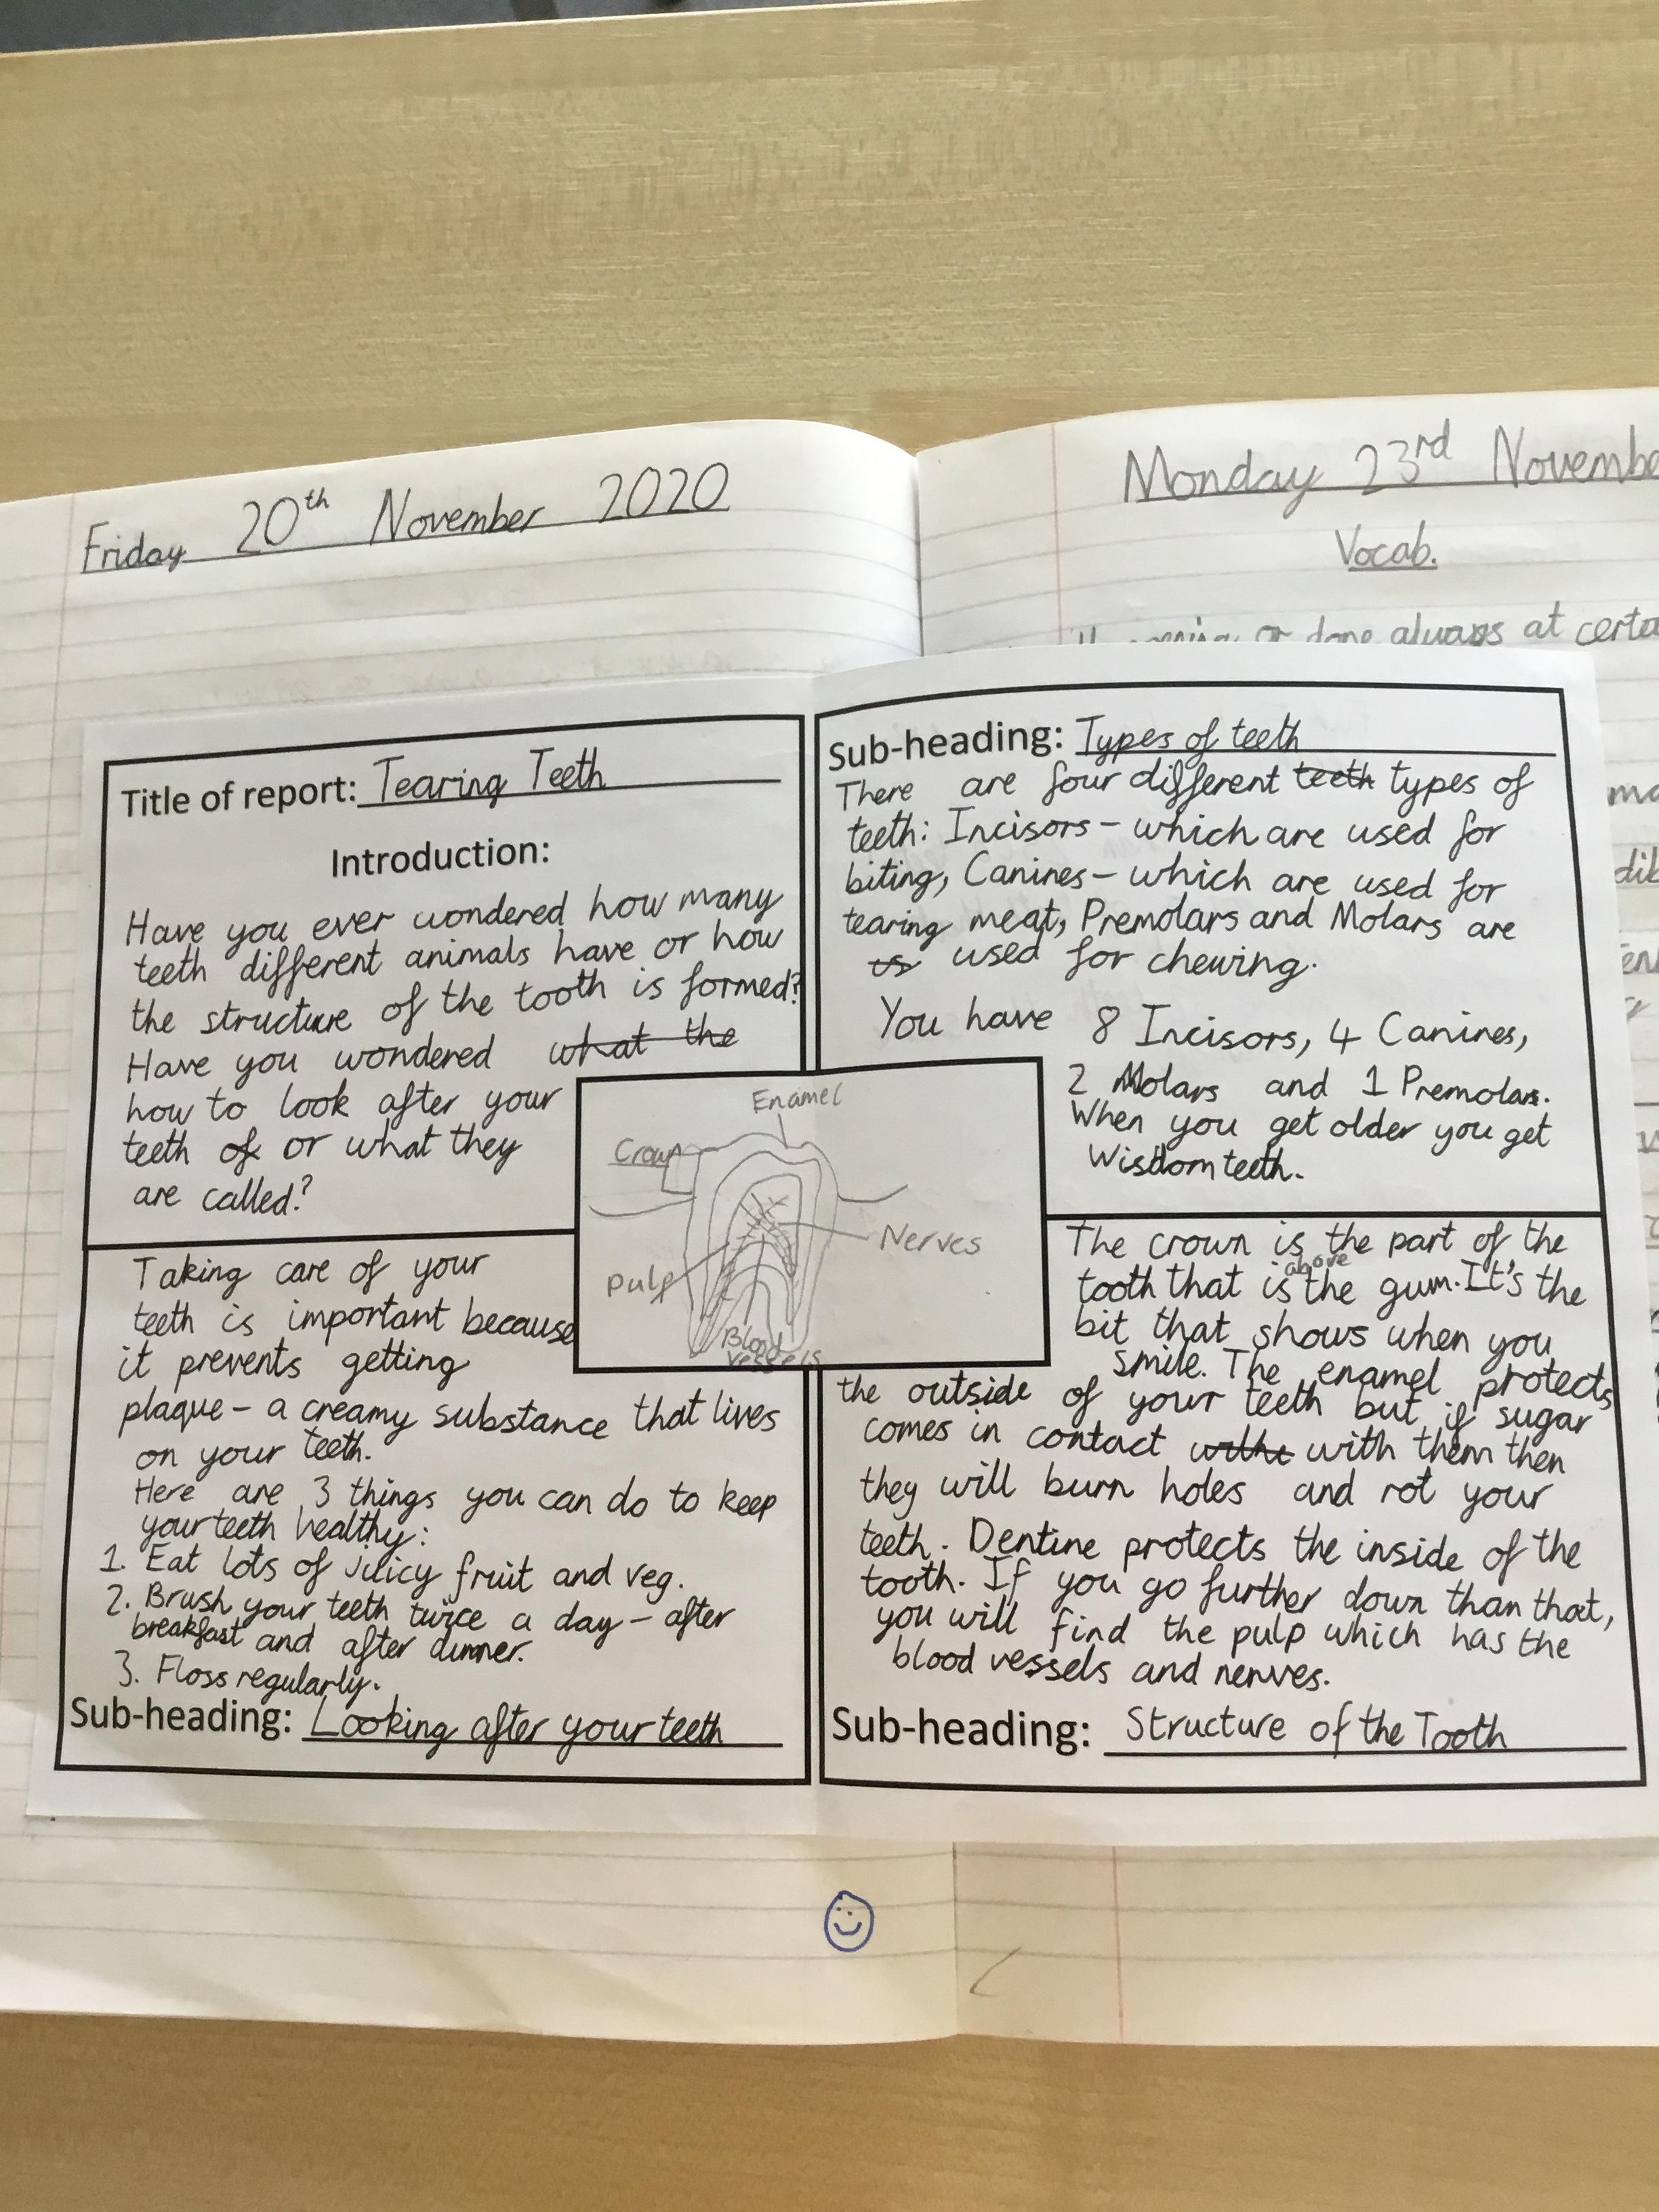 Friday 20th November 2020
Monday 23rd Novembe
Vocab.
or done always at certa
Title of report: Tearing Teeth
Introduction:
Have you ever wondered how many
teeth different animals have or how
the structure of the tooth is formed?
Have you wondered what the
how to look after your
teeth of or what they
are called?
Sub-heading: Types of teeth
There are four different teeth types of
teeth: Incisors - which are used for
biting, Canines - which are used for
tearing meat, Premolars and Molars are
is used for chewing.
You have 8 Incisors, 4 Canines,
2 Molars and 1 Premolars.
When you get older you get
Wisdom teeth.
Enamel
Crown
Nerves
pulp
Blood
vessels
Taking care of your
teeth is important because
it prevents getting
plaque - a creamy substance that lives
on your teeth.
Here are 3 things you can do to keep
your teeth healthy:
1. Eat lots of juicy fruit and veg.
2. Brush your teeth twice a day - after
breakfast and after dinner.
3. Floss regularly.
Sub-heading: Looking after your teeth
The crown is the part of the
tooth that is above the gum. It's the
bit that shows when you
smile. The enamel protects
the outside of your teeth but if sugar
comes in contact withe with them then
they will burn holes and rot your
teeth. Dentine protects the inside of the
tooth. If you go further down than that,
you will find the pulp which has the
blood vessels and nerves.
Sub-heading: Structure of the Tooth